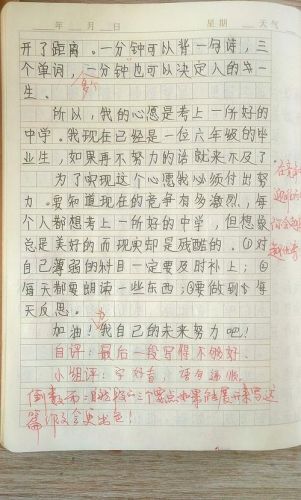 年 月 日 星期 天气
开了距离。一分钟可以背一句诗，三
个单词，一分钟也可以决定人的一
生。
所以，我的心愿是考上一所好的
中学。我现在已经是一位六年级的毕
业生，如果再不努力的话就来不及了
为了实现这个心愿我必须付出努
力。要知道现在的竞争有多激烈，每
个人都想考上一所好的中学，但想象
总是美好的而现实却是残酷的。①对
自己薄弱的科目一定要及时补上；②
每天都要朗读一些东西；③要做到每
天反思。
加油！为我自己的未来努力吧！
自评：最后一段写得不够好。
小组评：字好看，语句通顺。
三个要点，如果能展开来写，这
篇作文会更出色！